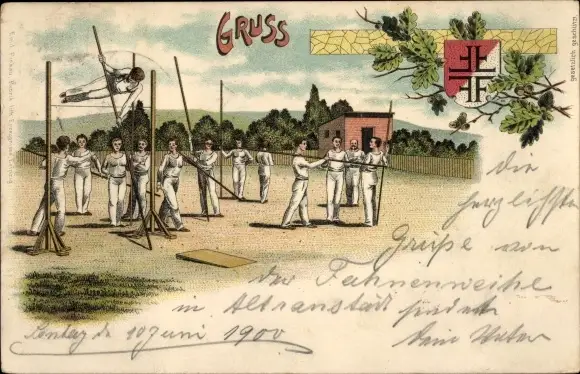 GRUSS
gesetzlich geschützt.
Die
herzlichsten
Grüße von
der Fahnenweihe
in Altranstädt sendet
Dein Vater
Sontag d. 10 Juni 1900